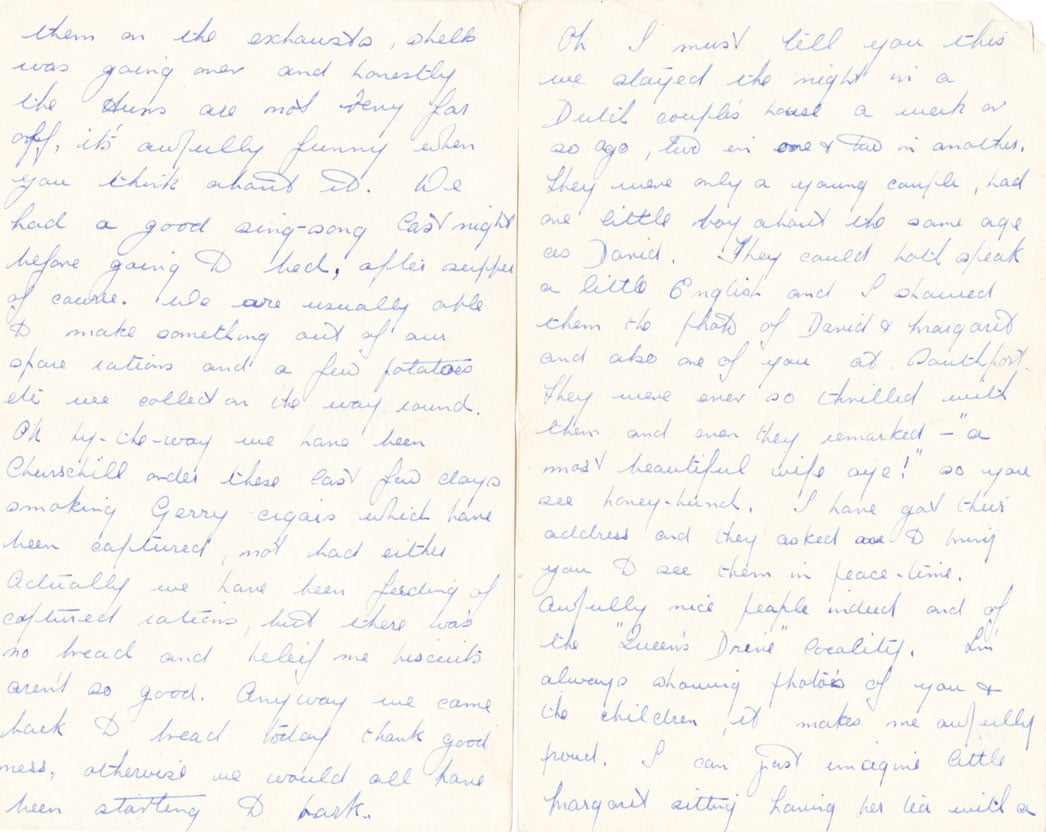 them on the exhausts, shells
was going over and honestly
the Huns are not very far
off, it's awfully funny when
you think about it. We
had a good sing-song last night
before going to bed, after supper
of course. We are usually able
to make something out of our
spare rations and a few potatoes
etc we collect on the way round.
Oh by-the-way we have been
Churchill order these last few days
smoking Gerry cigars which have
been captured, not bad either
Actually we have been feeding of
captured rations, but there was
no bread and beleif me biscuits
aren't so good. Anyway we came
back to bread today thank good
ness, otherwise we would all have
been starting to bark..
Oh I must tell you this
we stayed the night in a
Dutch couple's house a week or
so ago, two in one & two in another.
They were only a young couple, had
one little boy about the same age
as David. They could both speak
a little English and I showed
them the photo of David & Margaret
and also one of you at Southport.
They were ever so thrilled with
them and even they remarked – "a
most beautiful wife aye!" so you
see honey-bunch. I have got their
address and they asked to bring
you to see them in peace-time.
Awfully nice people indeed and of
the "Queen's Drive" locality. I'm
always showing photo's of you &
the children, it makes me awfully
proud. I can just imagine little
Margaret sitting having her tea with a